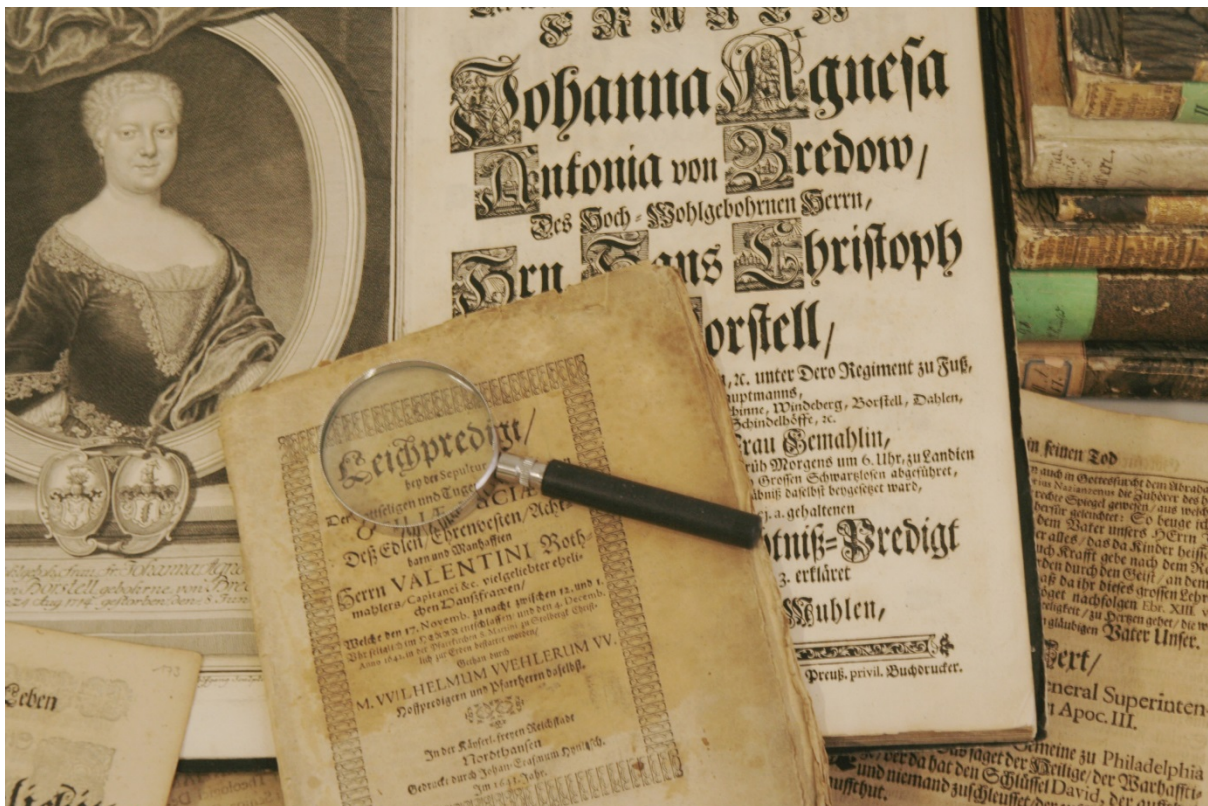 Johanna Agnesa
Antonia von Bredow/
Des Hoch-Wohlgebohrnen Herrn,
Hrn. Hans Christoph
orstell/
, ꝛc. unter Dero Regiment zu Fuß,
uptmanns,
binne, Windeberg, Borstell, Dahlen,
Schindelhöffe, ꝛc.
Frau Gemahlin,
rüh Morgens um 6. Uhr, zu Landien
Grossen Schwartzlosen abgeführet,
daselbst beygesetzet ward,
. a. gehaltenen
tniß-Predigt
3. erkläret
Muhlen,
Preuß. privil. Buchdrucker.
Leichpredigt/
bey der Sepultur
Der
seligen und Tuge
Deß Edlen/ Ehrenvesten/ Acht-
barn und Manhafften
Herrn VALENTINI Roth-
mahlers/ Capitanei &c. vielgeliebter eheli-
chen Haußfrawen/
Welche den 17. Novemb. zu nacht zwischen 12. und 1.
Uhr
entschlaffen/ und den 4. Decemb.
Anno 1641. in der Pfarrkirchen S. Martini zu Stolbergk Christ-
lich zur Erden bestattet worden/
Gethan durch
M. VVILHELMUM VVEHLERUM VV.
Hoffpredigern und Pfarrherrn daselbst.
In der Käyserl. freyen Reichstadt
Northausen
Gedruckt durch Johan-Erasmum Hynitzsch.
Im
Jahr.
Johanna Agne
gebohrne von Bre
gestorben den
Leben
in seinen Tod
auch in Gottesfurcht dem Abraha
Nazianzenus die Zuhörer des
rechte Spiegel gewesen/ aus welch
So beuge ich
dem Vater unsers HErrn
er alles/ das da Kinder heiss
Krafft gebe nach dem Re
den durch den Geist/ an dem
daß da ihr dieses grossen Lehr
nachfolgen Ebr. XIII. v
seligkeit/ zu Hertzen gehet/ die w
gläubigen Vater Unser.
Text/
eneral Superinten-
Apoc. III.
Gemeine zu Philadelphia
saget der Heilige/ der Warhaffti-
der da hat den Schlüssel David, der
und niemand zuschleusset/ der
uffthut.